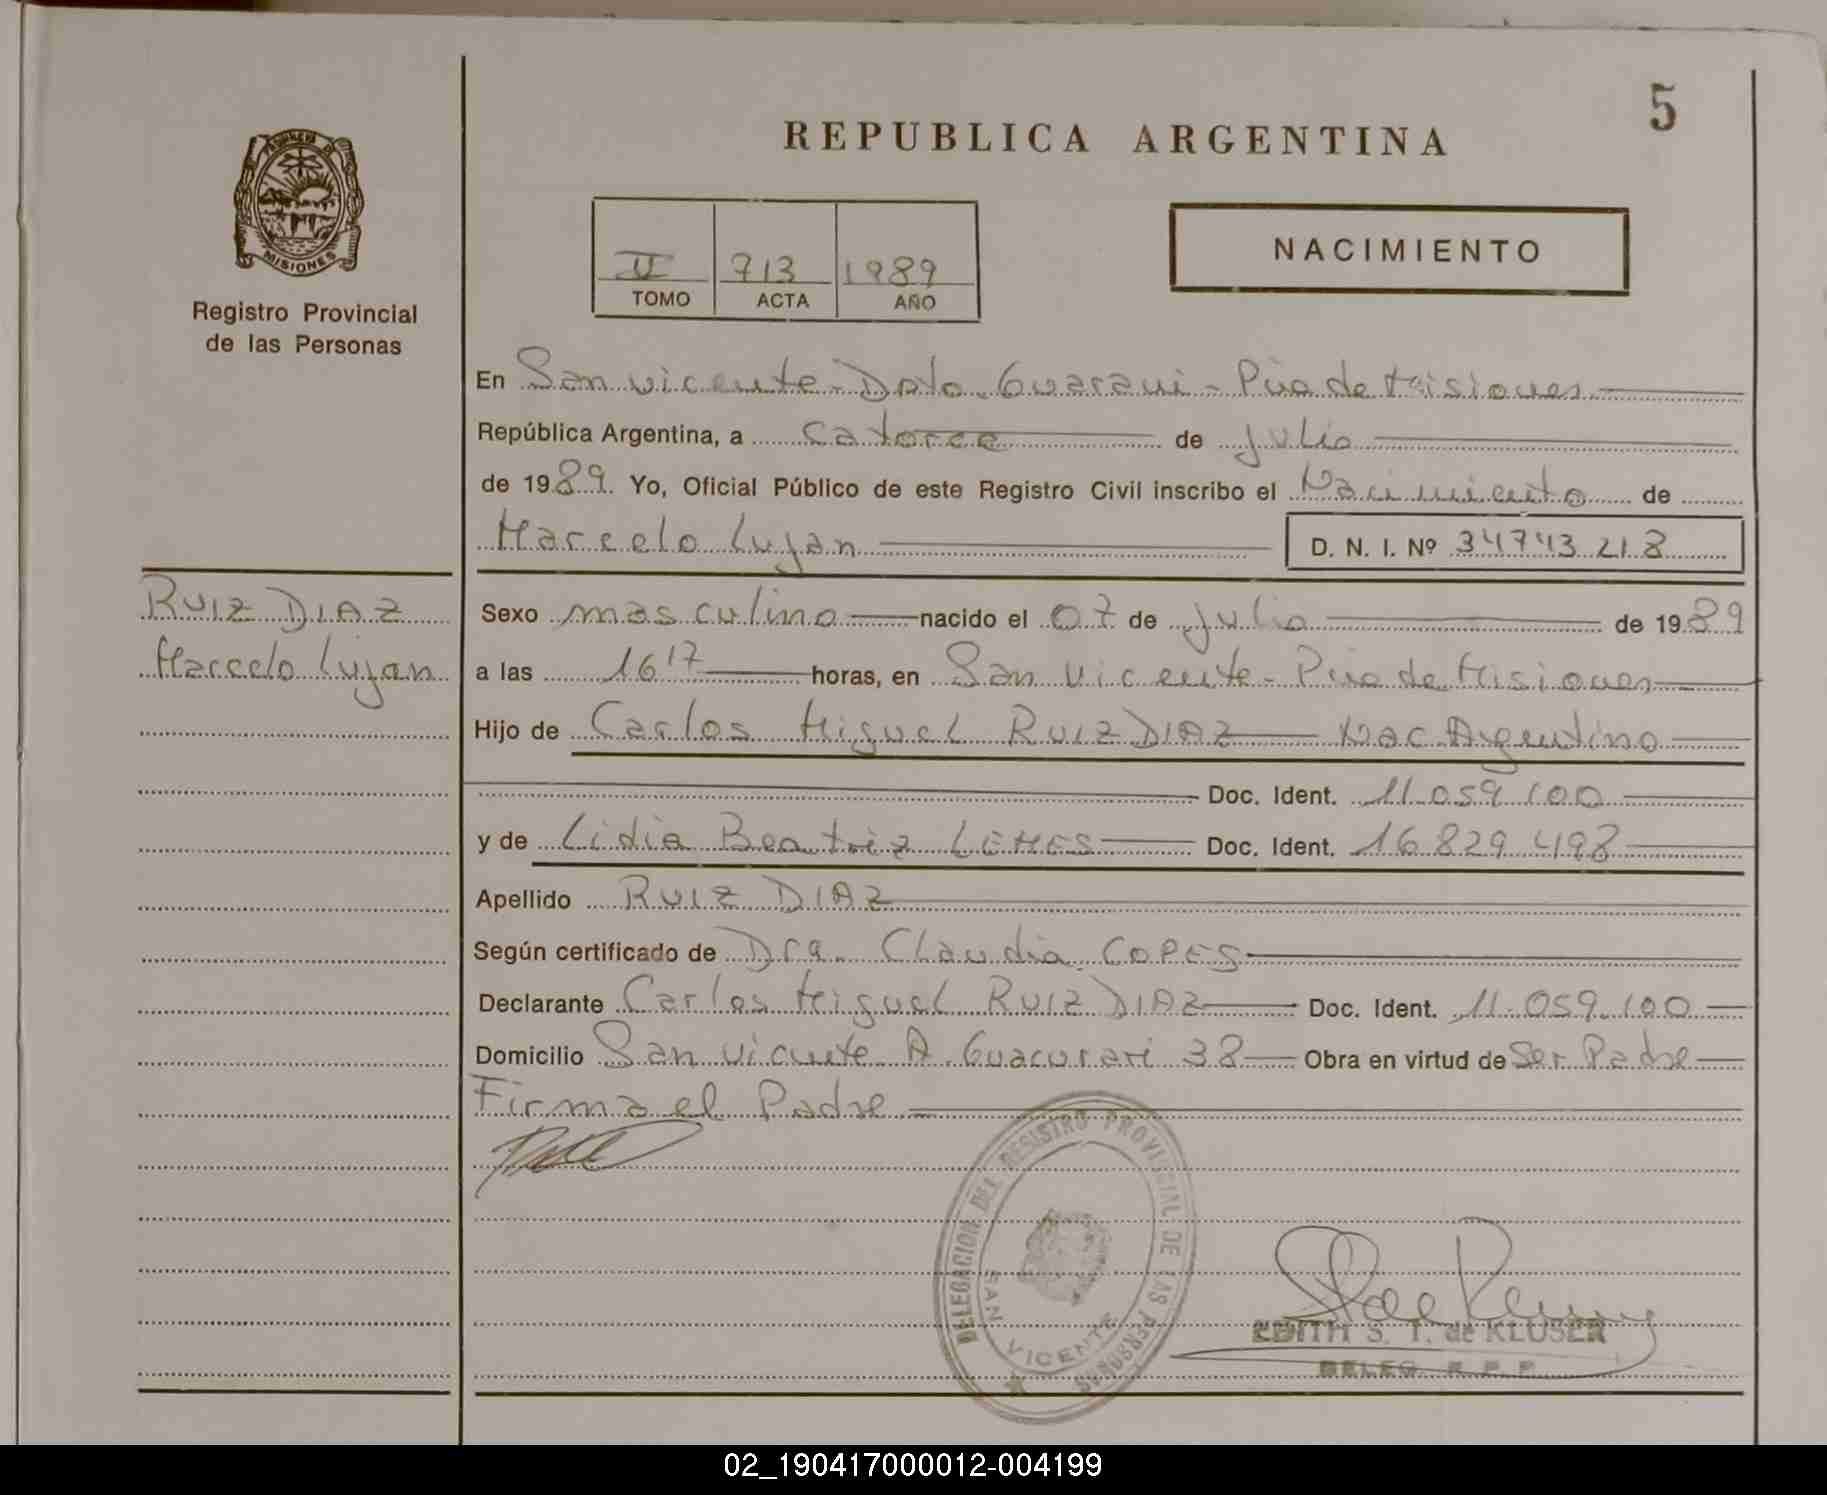 5
REPUBLICA ARGENTINA
MISIONES
Registro Provincial
de las Personas
II 713 1989
TOMO ACTA AÑO
NACIMIENTO
En San Vicente - Dpto. Guarani - Pcia de Misiones
República Argentina, a Catorce de Julio
de 1989. Yo, Oficial Público de este Registro Civil inscribo el Nacimiento de
Marcelo Lujan D. N. I. Nº 34743218
RUIZ DIAZ
Marcelo Lujan
Sexo masculino nacido el 07 de Julio de 1989
a las 16 17 horas, en San Vicente - Pcia de Misiones
Hijo de Carlos Miguel RUIZ DIAZ Nac. Argentino
Doc. Ident. 11.059.100
y de Lidia Beatriz LEMES Doc. Ident. 16.829.498
Apellido RUIZ DIAZ
Según certificado de Dra. Claudia COPES
Declarante Carlos Miguel RUIZ DIAZ Doc. Ident. 11.059.100
Domicilio San Vicente A. Guacurari 38 Obra en virtud de Ser Padre
Firma el Padre
DELEGACION DEL REGISTRO PROVINCIAL DE LAS PERSONAS
SAN VICENTE
EDITH S. T. de KLUSER
DELEG. R. P. P.
02_190417000012-004199